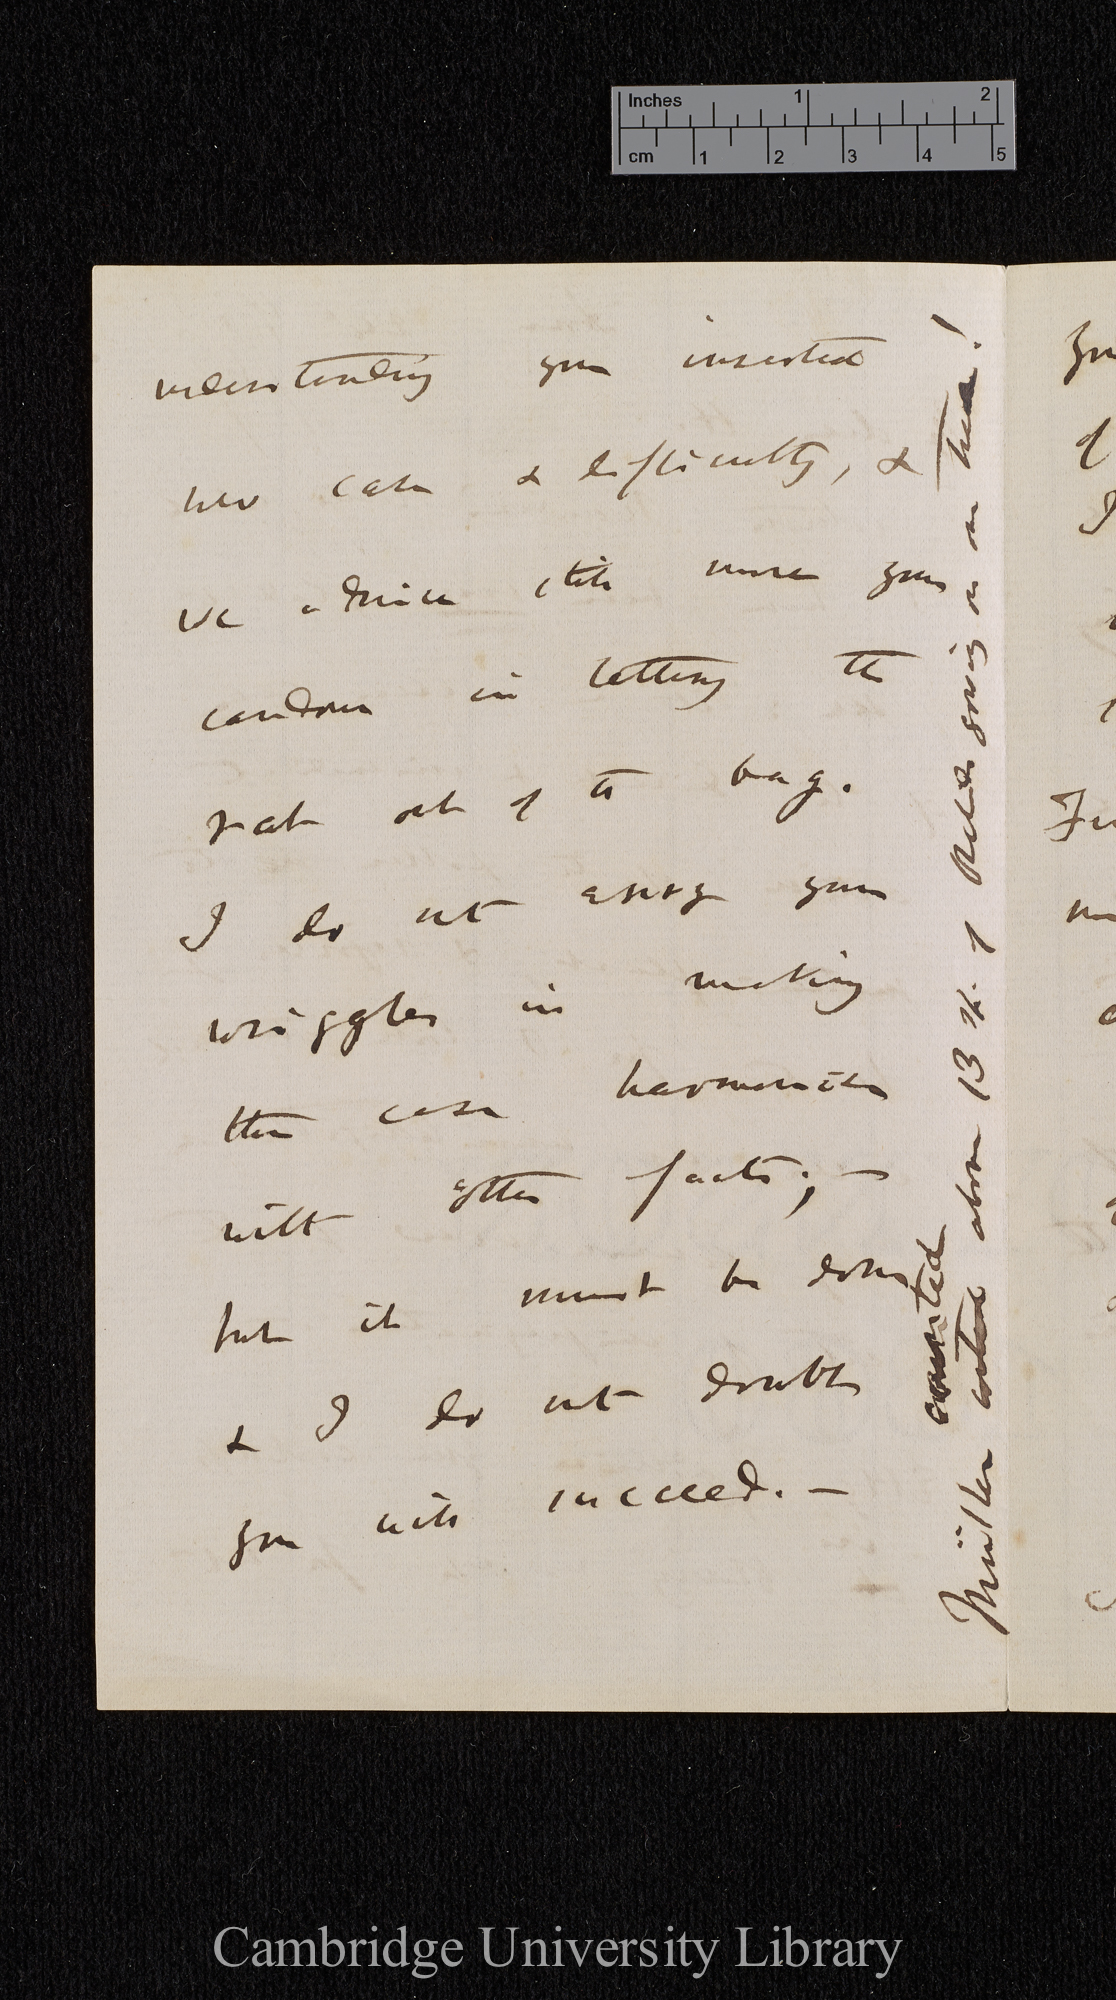 Inches 1 2
cm 1 2 3 4 5
understanding you inserted
new case & difficulty, &
we admire still more your
candour in letting the
rat out of the bag.
I do not envy your
wriggles in making
the case harmonise
with other facts; —
but it must be done
& I do not doubt
you will succeed. —
counted
Müller above 13 sp. of sowing on one tree!
Cambridge University Library